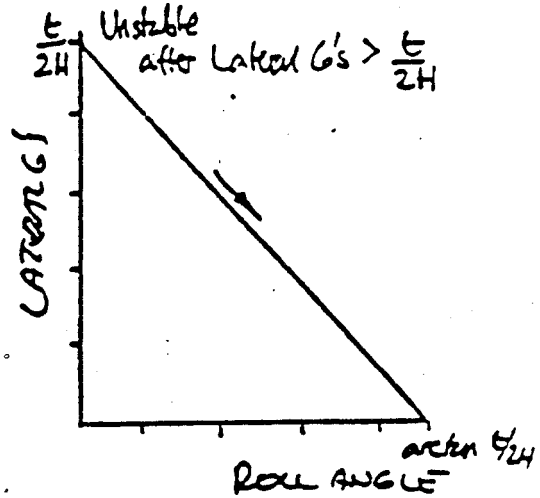 t/2H Unstable
after Lateral G's > t/2H
LATERAL G'S
arctan t/2H
ROLL ANGLE